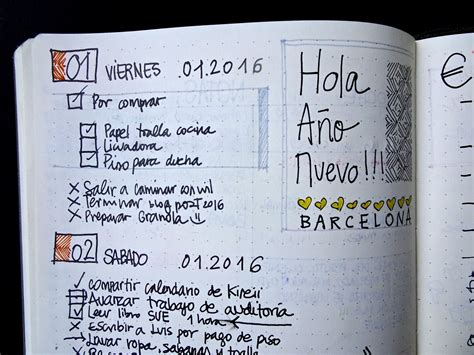 01 VIERNES .01.2016
Por comprar
Papel toalla cocina
Licuadora
Piso para ducha
X Salir a caminar con wil
X Terminar blog post 2016
X Preparar Granola
Hola
Año
Nuevo!!!
BARCELONA
€
02 SABADO .01.2016
Compartir calendario de
Avanzar trabajo de auditoría
Leer libro SUE 1 hora
X Escribir a Luis por pago de piso
Lavar ropa, sabanas y toalla